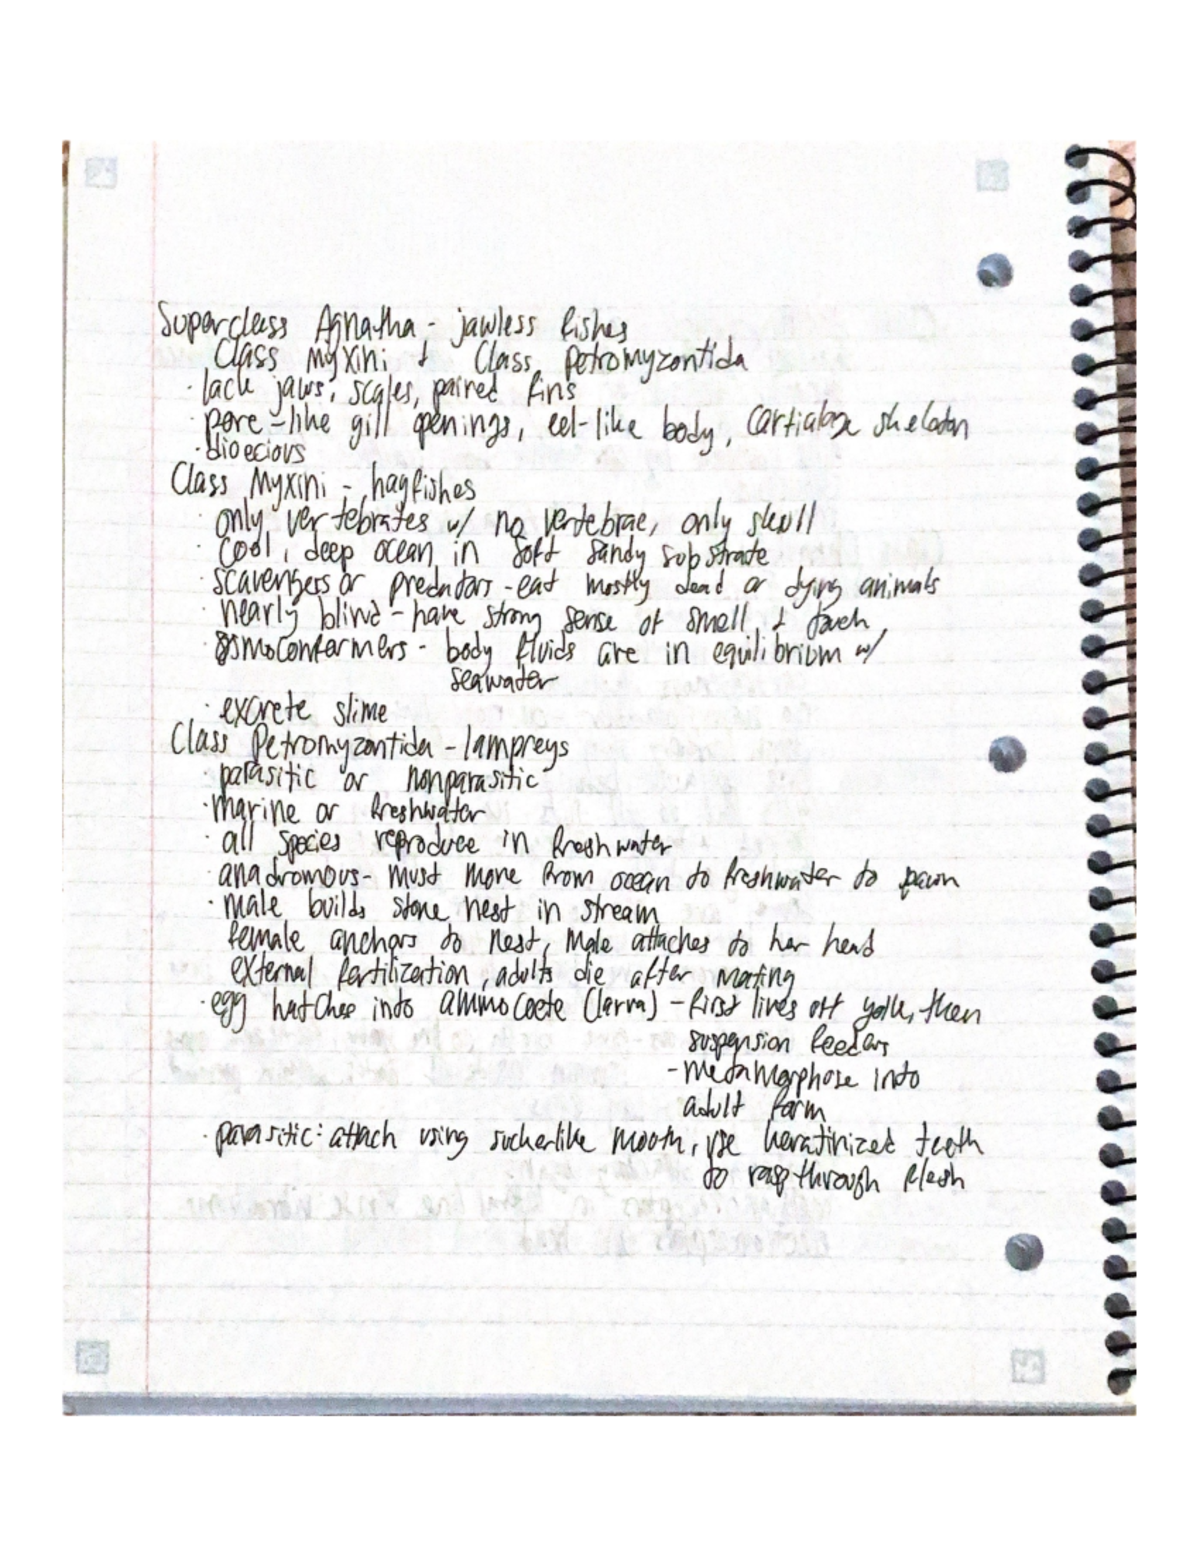 Superclass Agnatha - jawless fishes
Class Myxini + Class Petromyzontida
· lack jaws, scales, paired fins
· pore-like gill openings, eel-like body, cartialage skeleton
· dioecious
Class Myxini - hagfishes
· only vertebrates w/ no vertebrae, only skull
· cool, deep ocean in soft sandy substrate
· scavengers or predators - eat mostly dead or dying animals
· nearly blind - have strong sense of smell + touch
· osmoconformers - body fluids are in equilibrium w/
seawater
· excrete slime
Class Petromyzontida - lampreys
parasitic or nonparasitic
· marine or freshwater
· all species reproduce in freshwater
· anadromous - must move from ocean to freshwater to pawn
· male builds stone nest in stream
female anchors to nest, male attaches to her head
external fertilization, adults die after mating
· egg hatches into ammocoete (larva) - first lives off yolk, then
suspension feeders
- metamorphose into
adult form
· parasitic: attach using suckerlike mouth, use keratinized teeth
to rasp through flesh